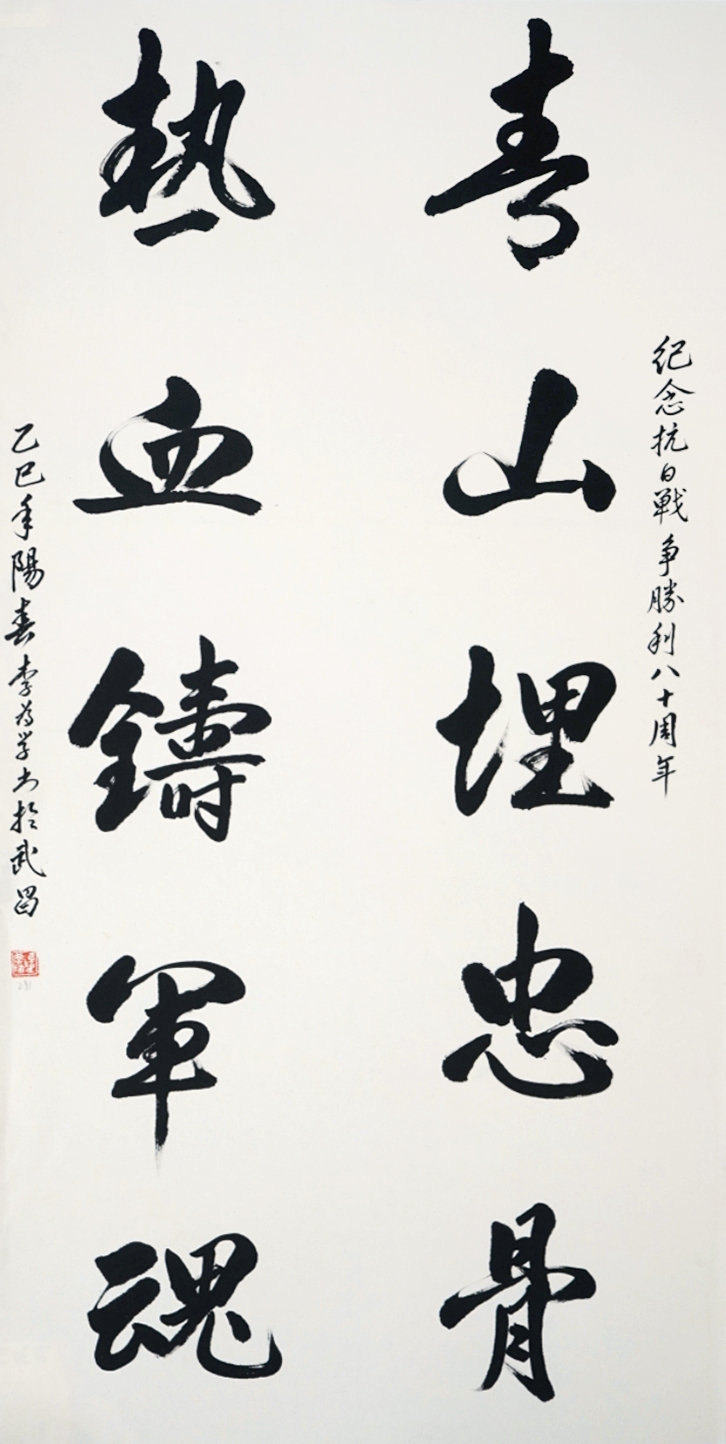 紀念抗日戰争勝利八十周年
青山埋忠骨
熱血鑄軍魂
乙巳年陽春李為学书於武昌